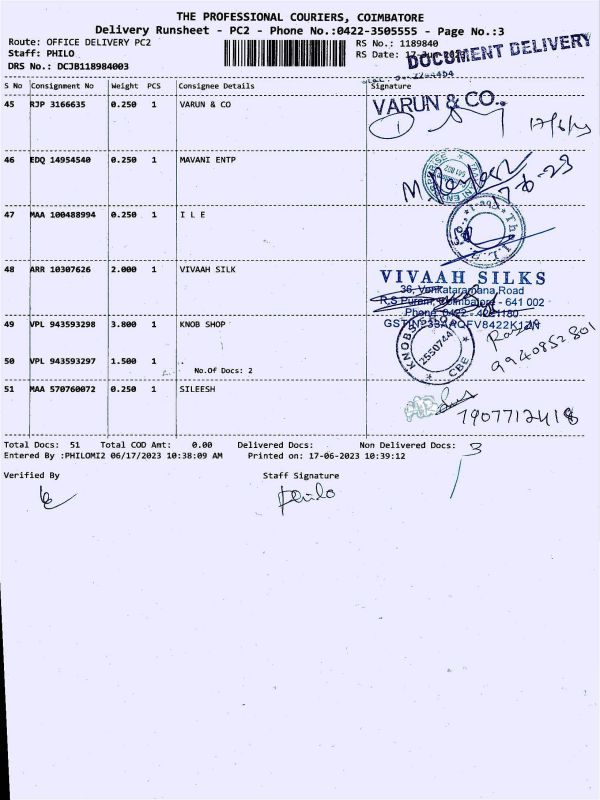 THE PROFESSIONAL COURIERS, COIMBATORE
Delivery Runsheet - PC2 - Phone No.:0422-3505555 - Page No.:3
Route: OFFICE DELIVERY PC2
RS No.: 1189840
Staff: PHILO
RS Date: 17-Jun-2023
DOCUMENT DELIVERY
DRS No.: DCJB118984003
S No Consignment No Weight PCS Consignee Details Signature
45 RJP 3166635 0.250 1 VARUN & CO
VARUN & CO.
17/6/23
46 EDQ 14954540 0.250 1 MAVANI ENTP
47 MAA 100488994 0.250 1 I L E
48 ARR 10307626 2.000 1 VIVAAH SILK
VIVAAH SILKS
36, Venkataramana Road
R.S Puram, Coimbatore - 641 002
Phone 0422 - 4221180
49 VPL 943593298 3.800 1 KNOB SHOP
KNOBS SHOP
2550744
CBE
9940852801
50 VPL 943593297 1.500 1
No.Of Docs: 2
51 MAA 570760072 0.250 1 SILEESH
7907712418
Total Docs: 51 Total COD Amt: 0.00 Delivered Docs: Non Delivered Docs: 3
Entered By :PHILOMI2 06/17/2023 10:38:09 AM Printed on: 17-06-2023 10:39:12
Verified By Staff Signature
Philo